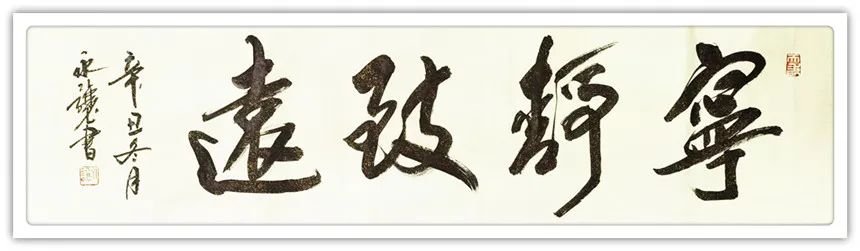 寧靜致遠
辛丑冬月
永驤書